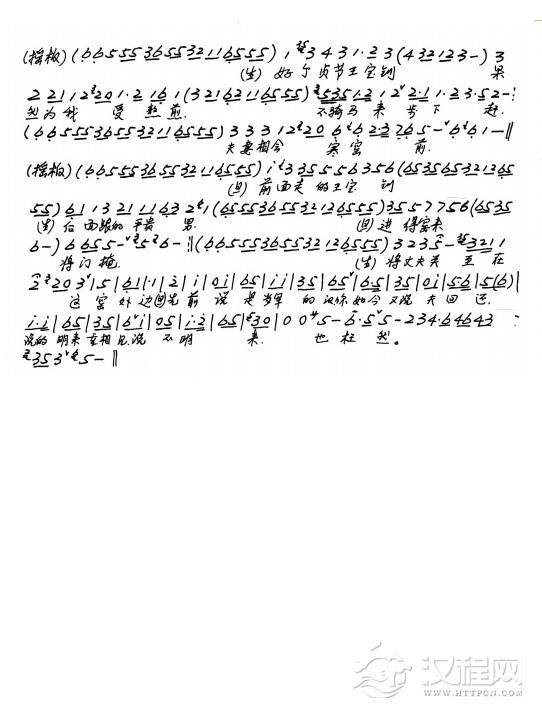 (摇板) (66555365532116555) 1 3 4 3 1·2 3 (4 3 2 1 2 3 -) 3
(生) 好了贞节王宝钏 果
2 2 1 1 2 2 0 1·2 1 6 1 (3 2 1 6 2 1 1 6 5 5 5) 5 3 5 1·2 1 2 2·1 1·2 3·5 2 -
然为我 受 熬煎. 不骑马 来 步下 赶.
(66555365532116555) 3 3 3 1 2 2 0 6 6 2 3 7 6 5 - 6 6 1 - ‖
夫妻相会 寒窑 前.
(摇板) (66555365532116555) i i 3 3 5 5 5 6 3 5 6 (6535653213 65
(旦) 前面走 的王宝 钏
5 5) 6 1 1 3 2 1 1 6 3 2 1 (6555365532126555) 3 5 5 7 7 5 6 (6535
(生) 后面跟的平贵 男. (旦) 进 得窑来
6 -) 6 6 5 5 - 5 6 - ‖ (6555365532126555) 3 2 3 5 - 3 2 1 1
将门掩. (生) 将丈夫关 至 在
2 2 0 3 | 5 | 6 1 | · 1 | 2 | i | 0 i | 6 5 | i i | 3 5 | 6 5 | 6·5 | 3 5 | 0 i | 5·6 | 5 (6) |
这 窑 外 边 (旦) 先前 说 是 当军 的汉 你如今又说 夫回 还.
i·i | 6 5 | 3 5 | 6 i | 0 5 | i·2 | 6 5 | 3 0 | 0 0 5 - 6·5 5 - 2 3 4·6 4 6 4 3
说的 明来 重相见, 说 不明 来. 也 枉 然。
3 5 3 5 - ‖
汉程网
WWW.HTTPCN.COM